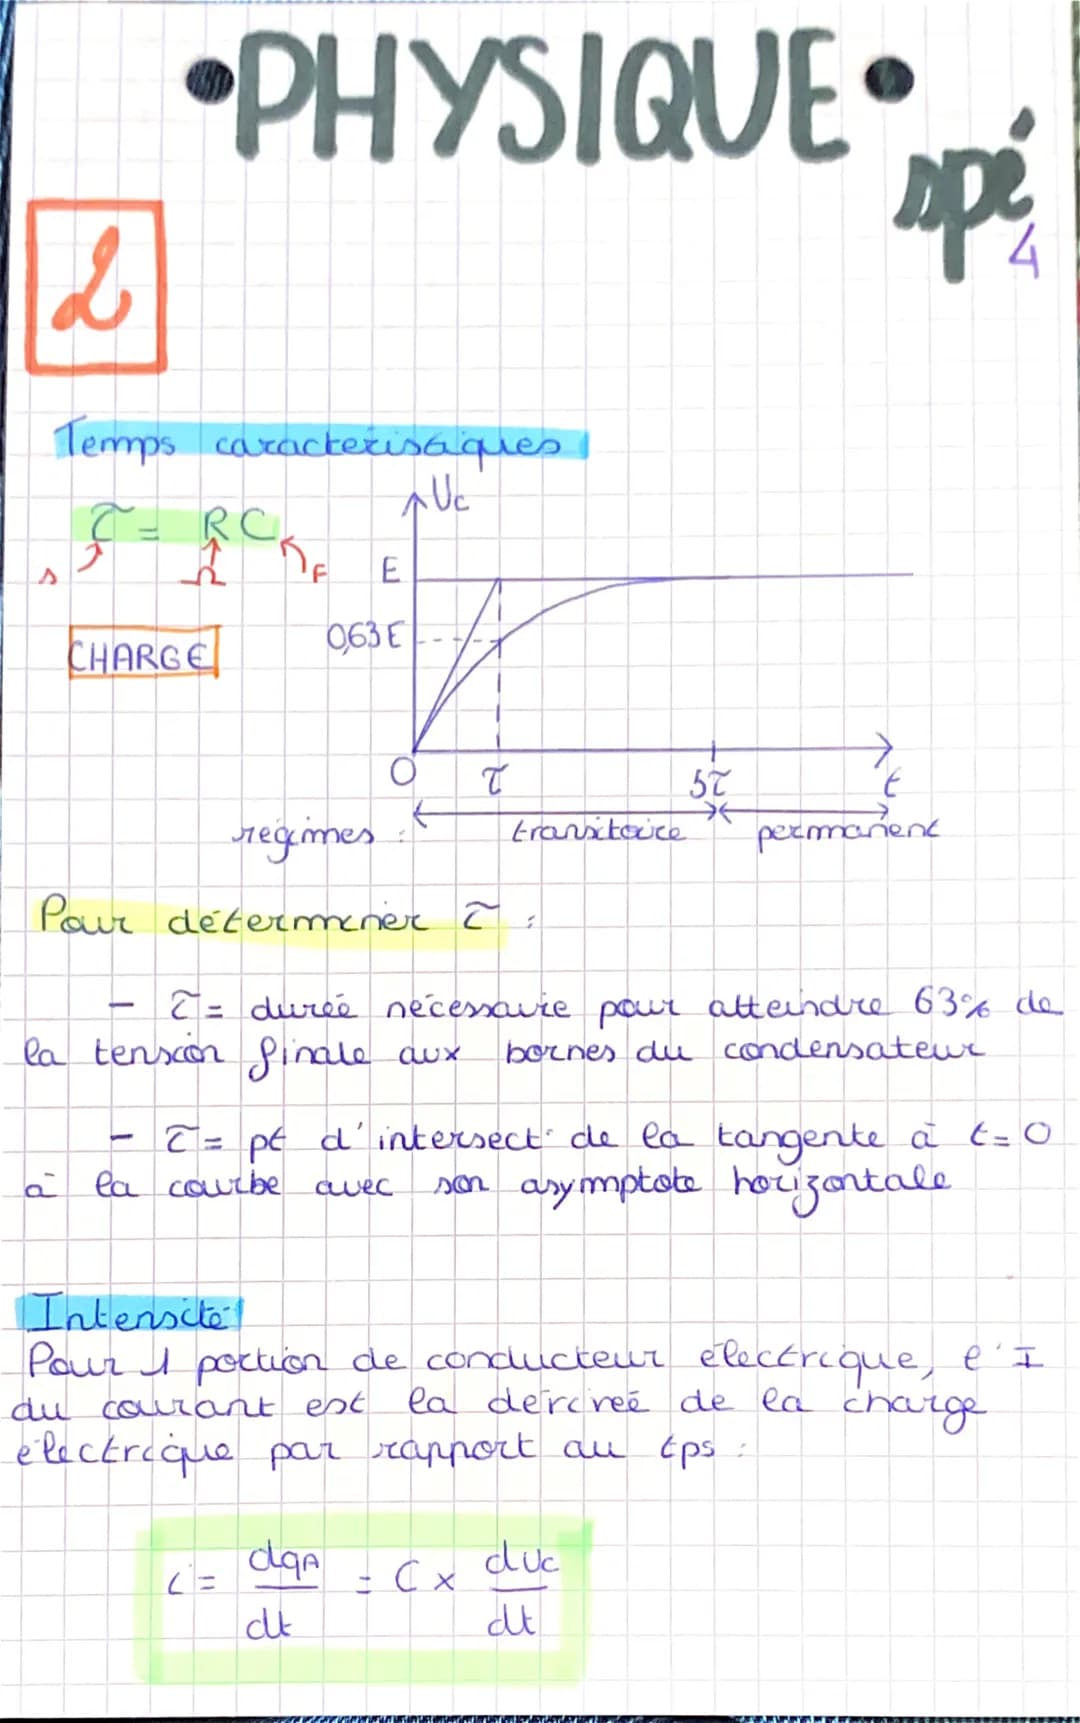 •PHYSIQUE•
spé
4
2
Temps caractéristiques
τ = RC
s Ω F
CHARGE
Uc
E
0,63E
O τ 5τ t
régimes : transitoire permanent
Pour déterminer τ :
- τ = durée nécessaire pour atteindre 63% de
la tension finale aux bornes du condensateur
- τ = pt d'intersect° de la tangente à t=0
à la courbe avec son asymptote horizontale
Intensité
Pour 1 portion de conducteur électrique, l'I
du courant est la dérivée de la charge
électrique par rapport au tps :
i = dqA/dt = C x duc/dt